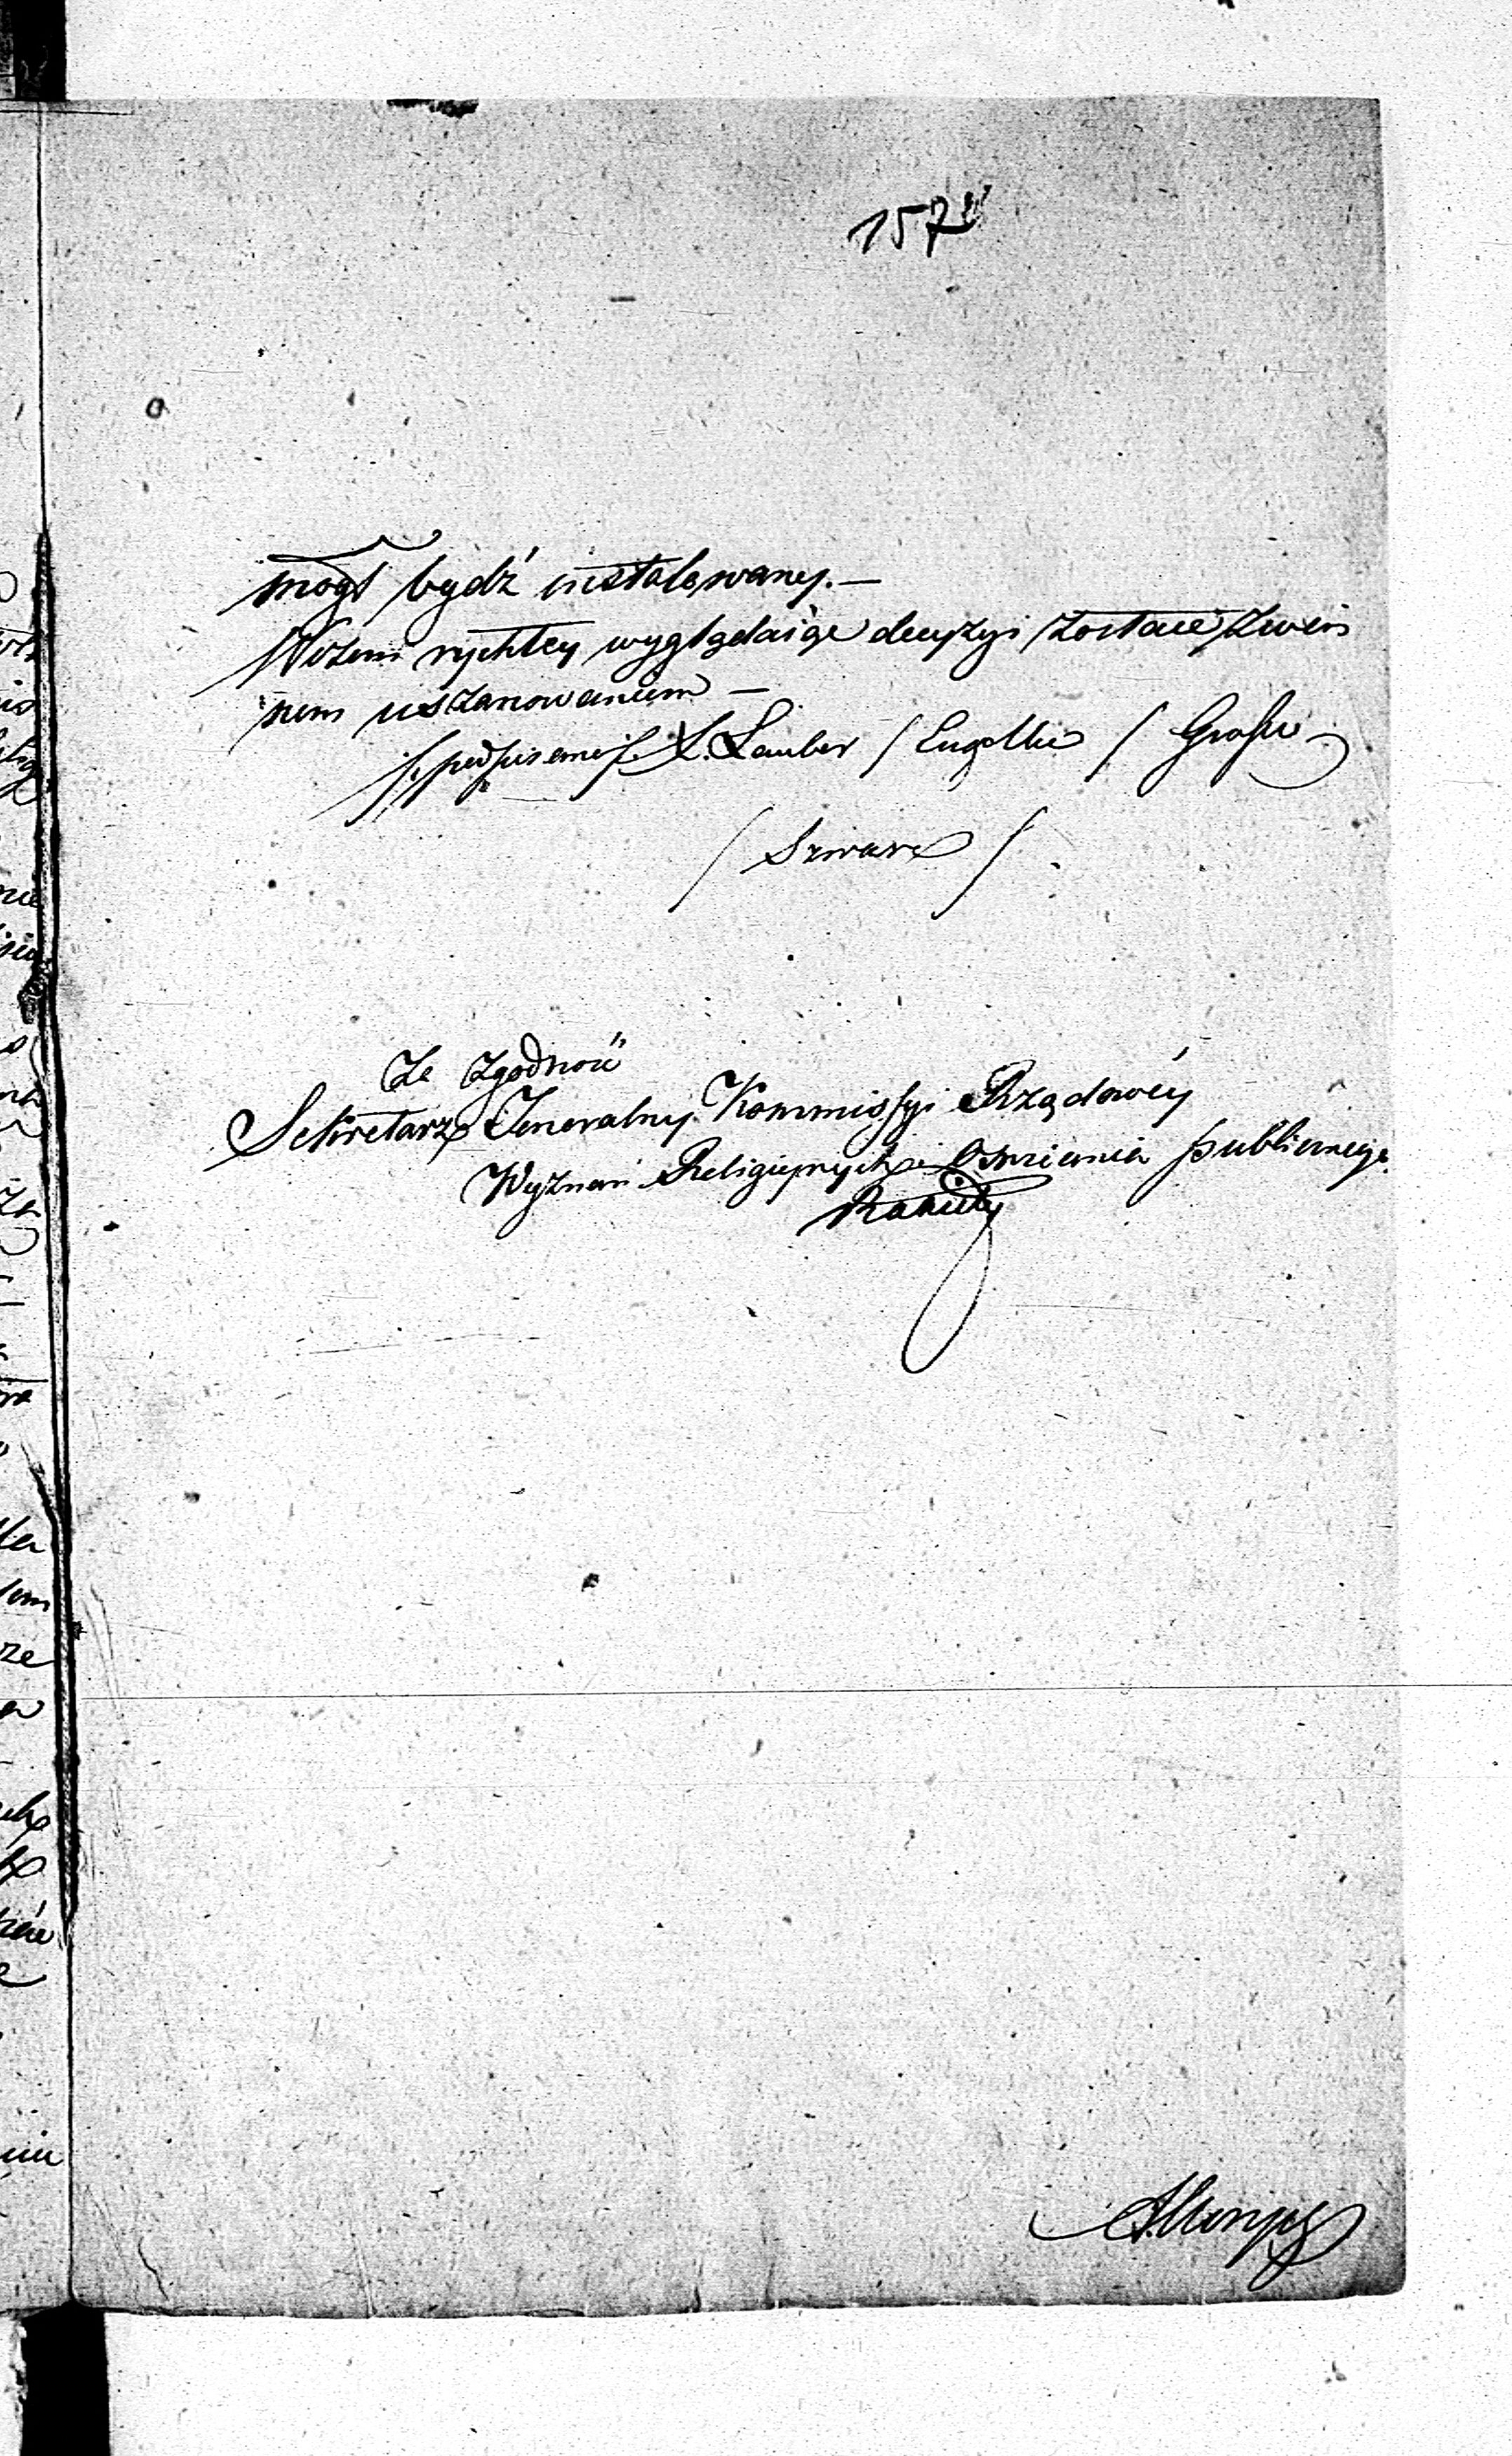 157
mogł bydź instalowany. —
Wczem rychłey wyglądaiąc decyzyi zostaie z win
nem uszanowaniem —
/: podpisano :/ L. Lauber / Engelke / Grosse
/ Szwarc /
Za Zgodność
Sekretarz Jeneralny Kommissyi Rządowéy
Wyznań Religiynych i Oświecenia publicznego